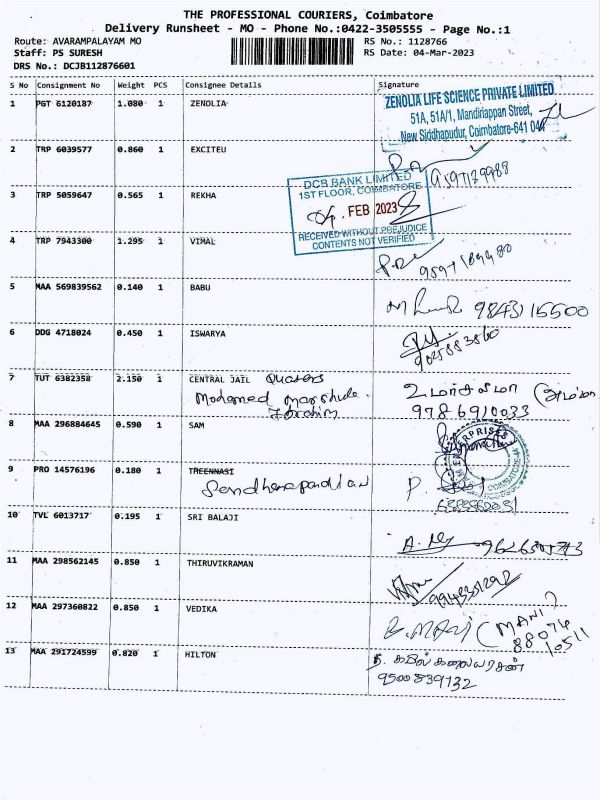 THE PROFESSIONAL COURIERS, Coimbatore
Delivery Runsheet - MO - Phone No.:0422-3505555 - Page No.:1
Route: AVARAMPALAYAM MO
RS No.: 1128766
Staff: PS SURESH
RS Date: 04-Mar-2023
DRS No.: DCJB112876601
S No Consignment No Weight PCS Consignee Details Signature
1 PGT 6120187 1.080 1 ZENOLIA
ZENOLIA LIFE SCIENCE PRIVATE LIMITED
51A, 51A/1, Mandiriappan Street,
New Siddhapudur, Coimbatore-641 044
2 TRP 6039577 0.860 1 EXCITEU
DCB BANK LIMITED
1ST FLOOR, COIMBATORE
3 TRP 5059647 0.565 1 REKHA
FEB 2023
RECEIVED WITHOUT PREJUDICE
CONTENTS NOT VERIFIED
4 TRP 7943300 1.295 1 VIMAL
5 MAA 569839562 0.140 1 BABU
9843115500
6 DDG 4718024 0.450 1 ISWARYA
7 TUT 6382358 2.150 1 CENTRAL JAIL Quaters
Mohamed
Ibrahim
9786910033
8 MAA 296884645 0.590 1 SAM
9 PRO 14576196 0.180 1 THEENNASI
COIMBATORE
10 TVL 6013717 0.195 1 SRI BALAJI
11 MAA 298562145 0.850 1 THIRUVIKRAMAN
12 MAA 297360822 0.850 1 VEDIKA
(MANI)
88074
10511
13 MAA 291724599 0.820 1 HILTON
9500839132